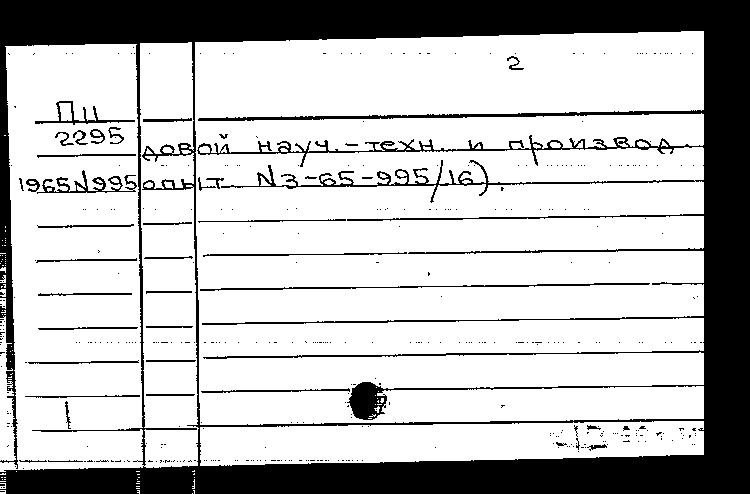 2
П 11
2295 довой науч.-техн. и производ.
1965 N995 опыт. N3-65-995/16).